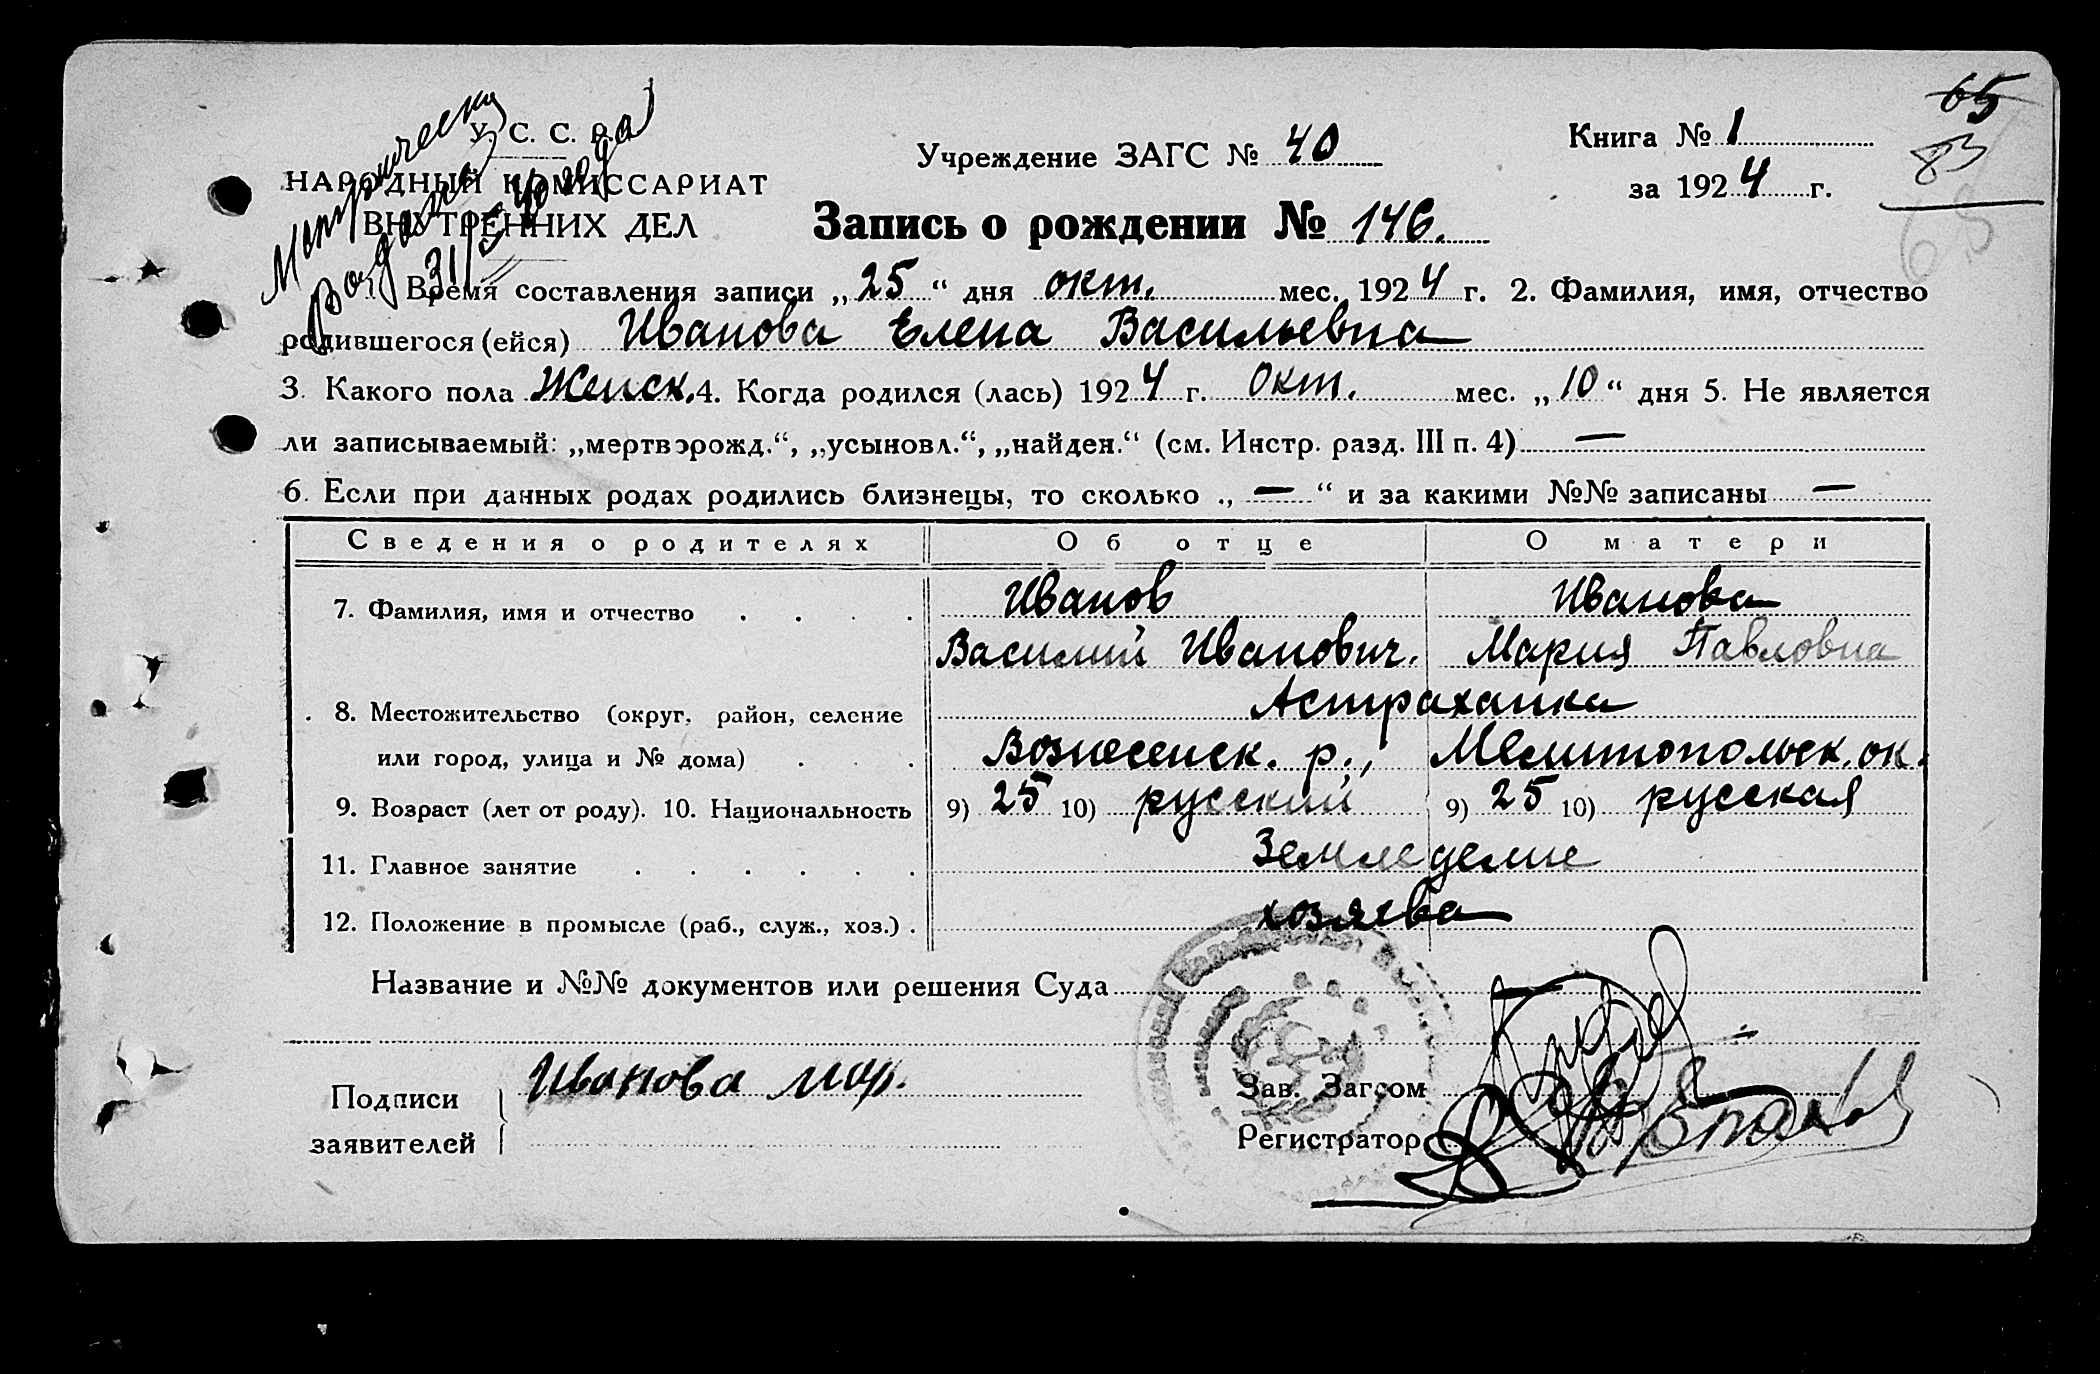 65
83
65
Метрическ
Выдана
31/5 40 года
У. С. С. Р.
НАРОДНЫЙ КОМИССАРИАТ
ВНУТРЕННИХ ДЕЛ
Учреждение ЗАГС № 40
Книга № 1
за 1924 г.
Запись о рождении № 146.
1. Время составления записи „25“ дня окт. мес. 1924 г. 2. Фамилия, имя, отчество
родившегося (ейся) Иванова Елена Васильевна
3. Какого пола Женск. 4. Когда родился (лась) 1924 г. Окт. мес. „10“ дня 5. Не является
ли записываемый: „мертворожд.“, „усыновл.“, „найден.“ (см. Инстр. разд. III п. 4) —
6. Если при данных родах родились близнецы, то сколько „—“ и за какими №№ записаны —
Сведения о родителях Об отце О матери
7. Фамилия, имя и отчество . . . . Иванов Иванова
Василий Иванович. Мария Павловна
8. Местожительство (округ, район, селение Астраханка
или город, улица и № дома) . . . Вознесенск. р., Мелитопольск. ок.
9. Возраст (лет от роду). 10. Национальность 9) 25 10) русский 9) 25 10) русская
11. Главное занятие . . . . . . Земледелие
12. Положение в промысле (раб., служ., хоз.) . хозяева
Название и №№ документов или решения Суда
Подписи
заявителей
Иванова мар.
Зав. Загсом
Регистратор